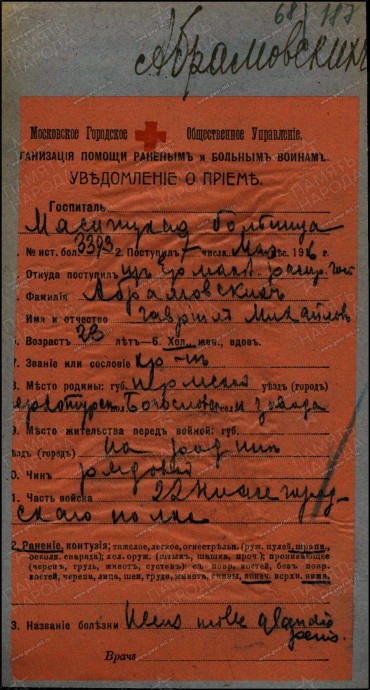 68/187
Абрамовскихъ
Московское Городское Общественное Управленіе.
ГАНИЗАЦІЯ ПОМОЩИ РАНЕНЫМЪ и БОЛЬНЫМЪ ВОИНАМЪ
УВѢДОМЛЕНІЕ О ПРІЕМѢ.
Госпиталь
больница
№ ист. бол. 3393 2. Поступил 7 числа Мая мѣс. 191 6 г.
Откуда поступил
Фамилія Абрамовскихъ
Имя и отчество Гаврiил Михайлов
Возраст 23 лѣт—6. Хол., жен., вдов.
7. Званіе или сословіе кр-нъ
8. Мѣсто родины: губ. Пермской уѣзд (город)
Богословск завода
9. Мѣсто жительства перед войной: губ.
ѣзд (город) на родинѣ
0. Чин рядовой
1. Часть войска 22 Нижегород-
скаго полка
2. Раненіе, контузія: тяжелое, легкое, огнестрѣльн. (руж. пулей, шрапн.,
осколк. снаряда); хол. оруж. (штык, шашка, проч.); проникающее
(череп, грудь, живот, сустав) с повр. костей, без повр.
костей, черепа, лица, шеи, груди, живота, спины, конеч. верхн. нижн.
3. Названіе болѣзни Ulcus molle glandis
penis.
Врачъ